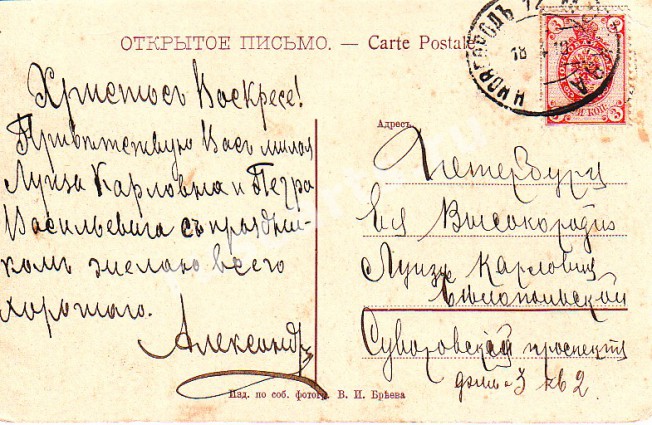 ОТКРЫТОЕ ПИСЬМО. — Carte Postale
Христосъ Воскресе!
Привѣтствую Васъ милая
Луиза Карловна и Петра
Васильевича съ праздни-
комъ желаю всего
хорошаго.
Александръ
Адресъ
Петербургъ
Ея Высокородію
Луизѣ Карловнѣ
Суворовскій проспектъ
домъ 3 кв 2
Изд. по соб. фотогр. В. И. Брѣева
18
3
3